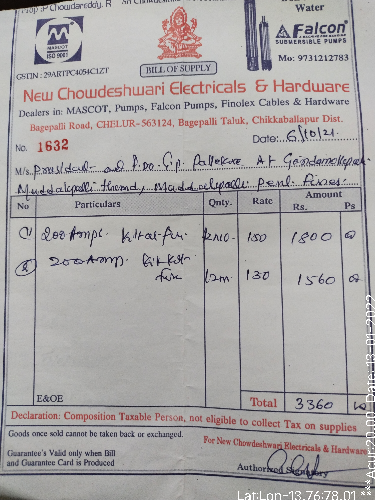 Prop: P Chowdareddy. R Sri Chowdeshw
Water
MASCOT
ISO 9001
Falcon
SUBMERSIBLE PUMPS
GSTIN : 29ARTPC4054C1ZT
BILL OF SUPPLY
Mo: 9731212783
New Chowdeshwari Electricals & Hardware
Dealers in: MASCOT, Pumps, Falcon Pumps, Finolex Cables & Hardware
Bagepalli Road, CHELUR-563124, Bagepalli Taluk, Chikkaballapur Dist.
No. 1632
Date: 6/10/21
M/s
No Particulars Qnty. Rate Amount
Rs. Ps
1) 200 Amps 150 1800
2) 200 Amp 12 130 1560
E&OE
Total 3360
Declaration: Composition Taxable Person, not eligible to collect Tax on supplies
Goods once sold cannot be taken back or exchanged.
For New Chowdeshwari Electricals & Hardware
Guarantee's Valid only when Bill
and Guarantee Card is Produced
Authorized Signatory
Lat:Lon-13.76:78.01
***Acur:20.00, Date:13-01-2022